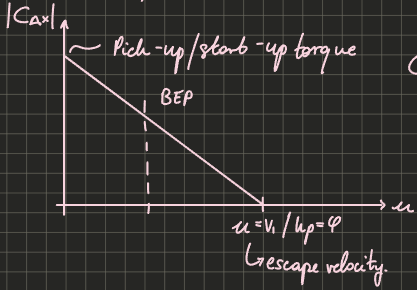 |C_Ax|
Pick-up/start-up torque
BEP
u
u=V₁ / hp=φ
↳escape velocity.